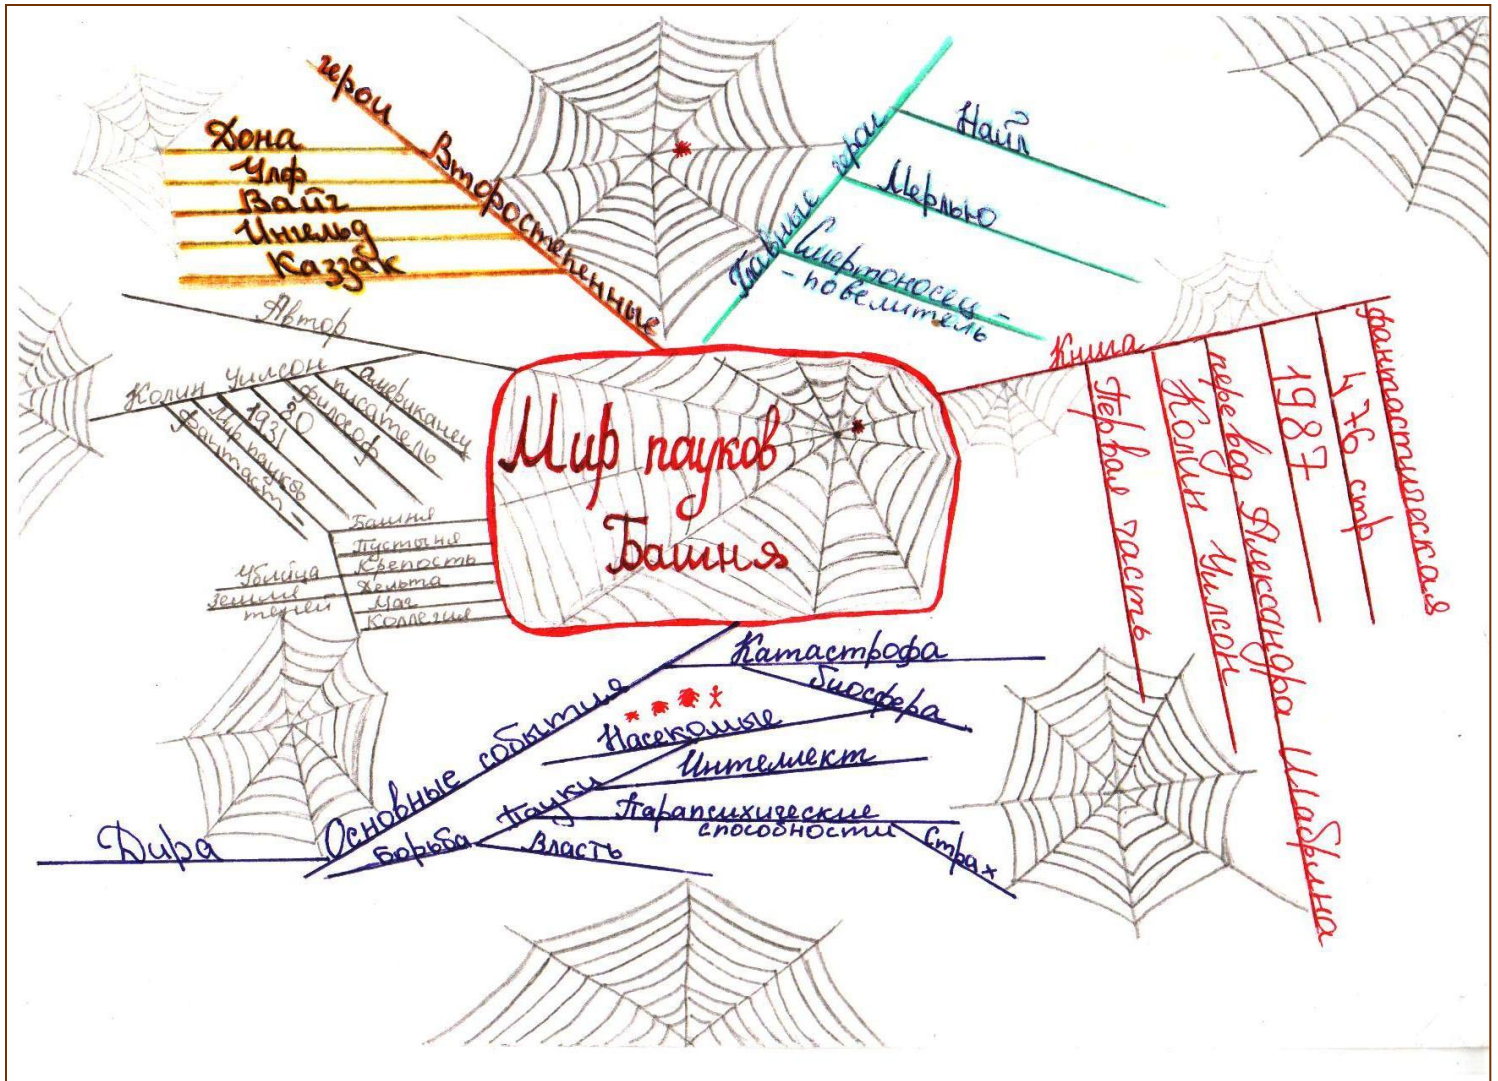 Мир пауков
Башня
герои Второстепенные
Дона
Улф
Вайг
Ингельд
Каззак
Главные герои
Найл
Мерлью
Смертоносец -
- повелитель
Книга
Первая часть
Колин Уилсон
перевод Александра Шабрина
1987
476 стр
фантастическая
Автор
Колин Уилсон
американец
писатель
философ
30
1931
Мир пауков
Фантаст -
Башня
Пустыня
Крепость
Дельта
Маг
Коллегия
Убийца
Земля
теней
Основные события
Катастрофа
биосфера
Насекомые
Пауки
Интеллект
Парапсихические
способности
Страх
борьба
Власть
Дира